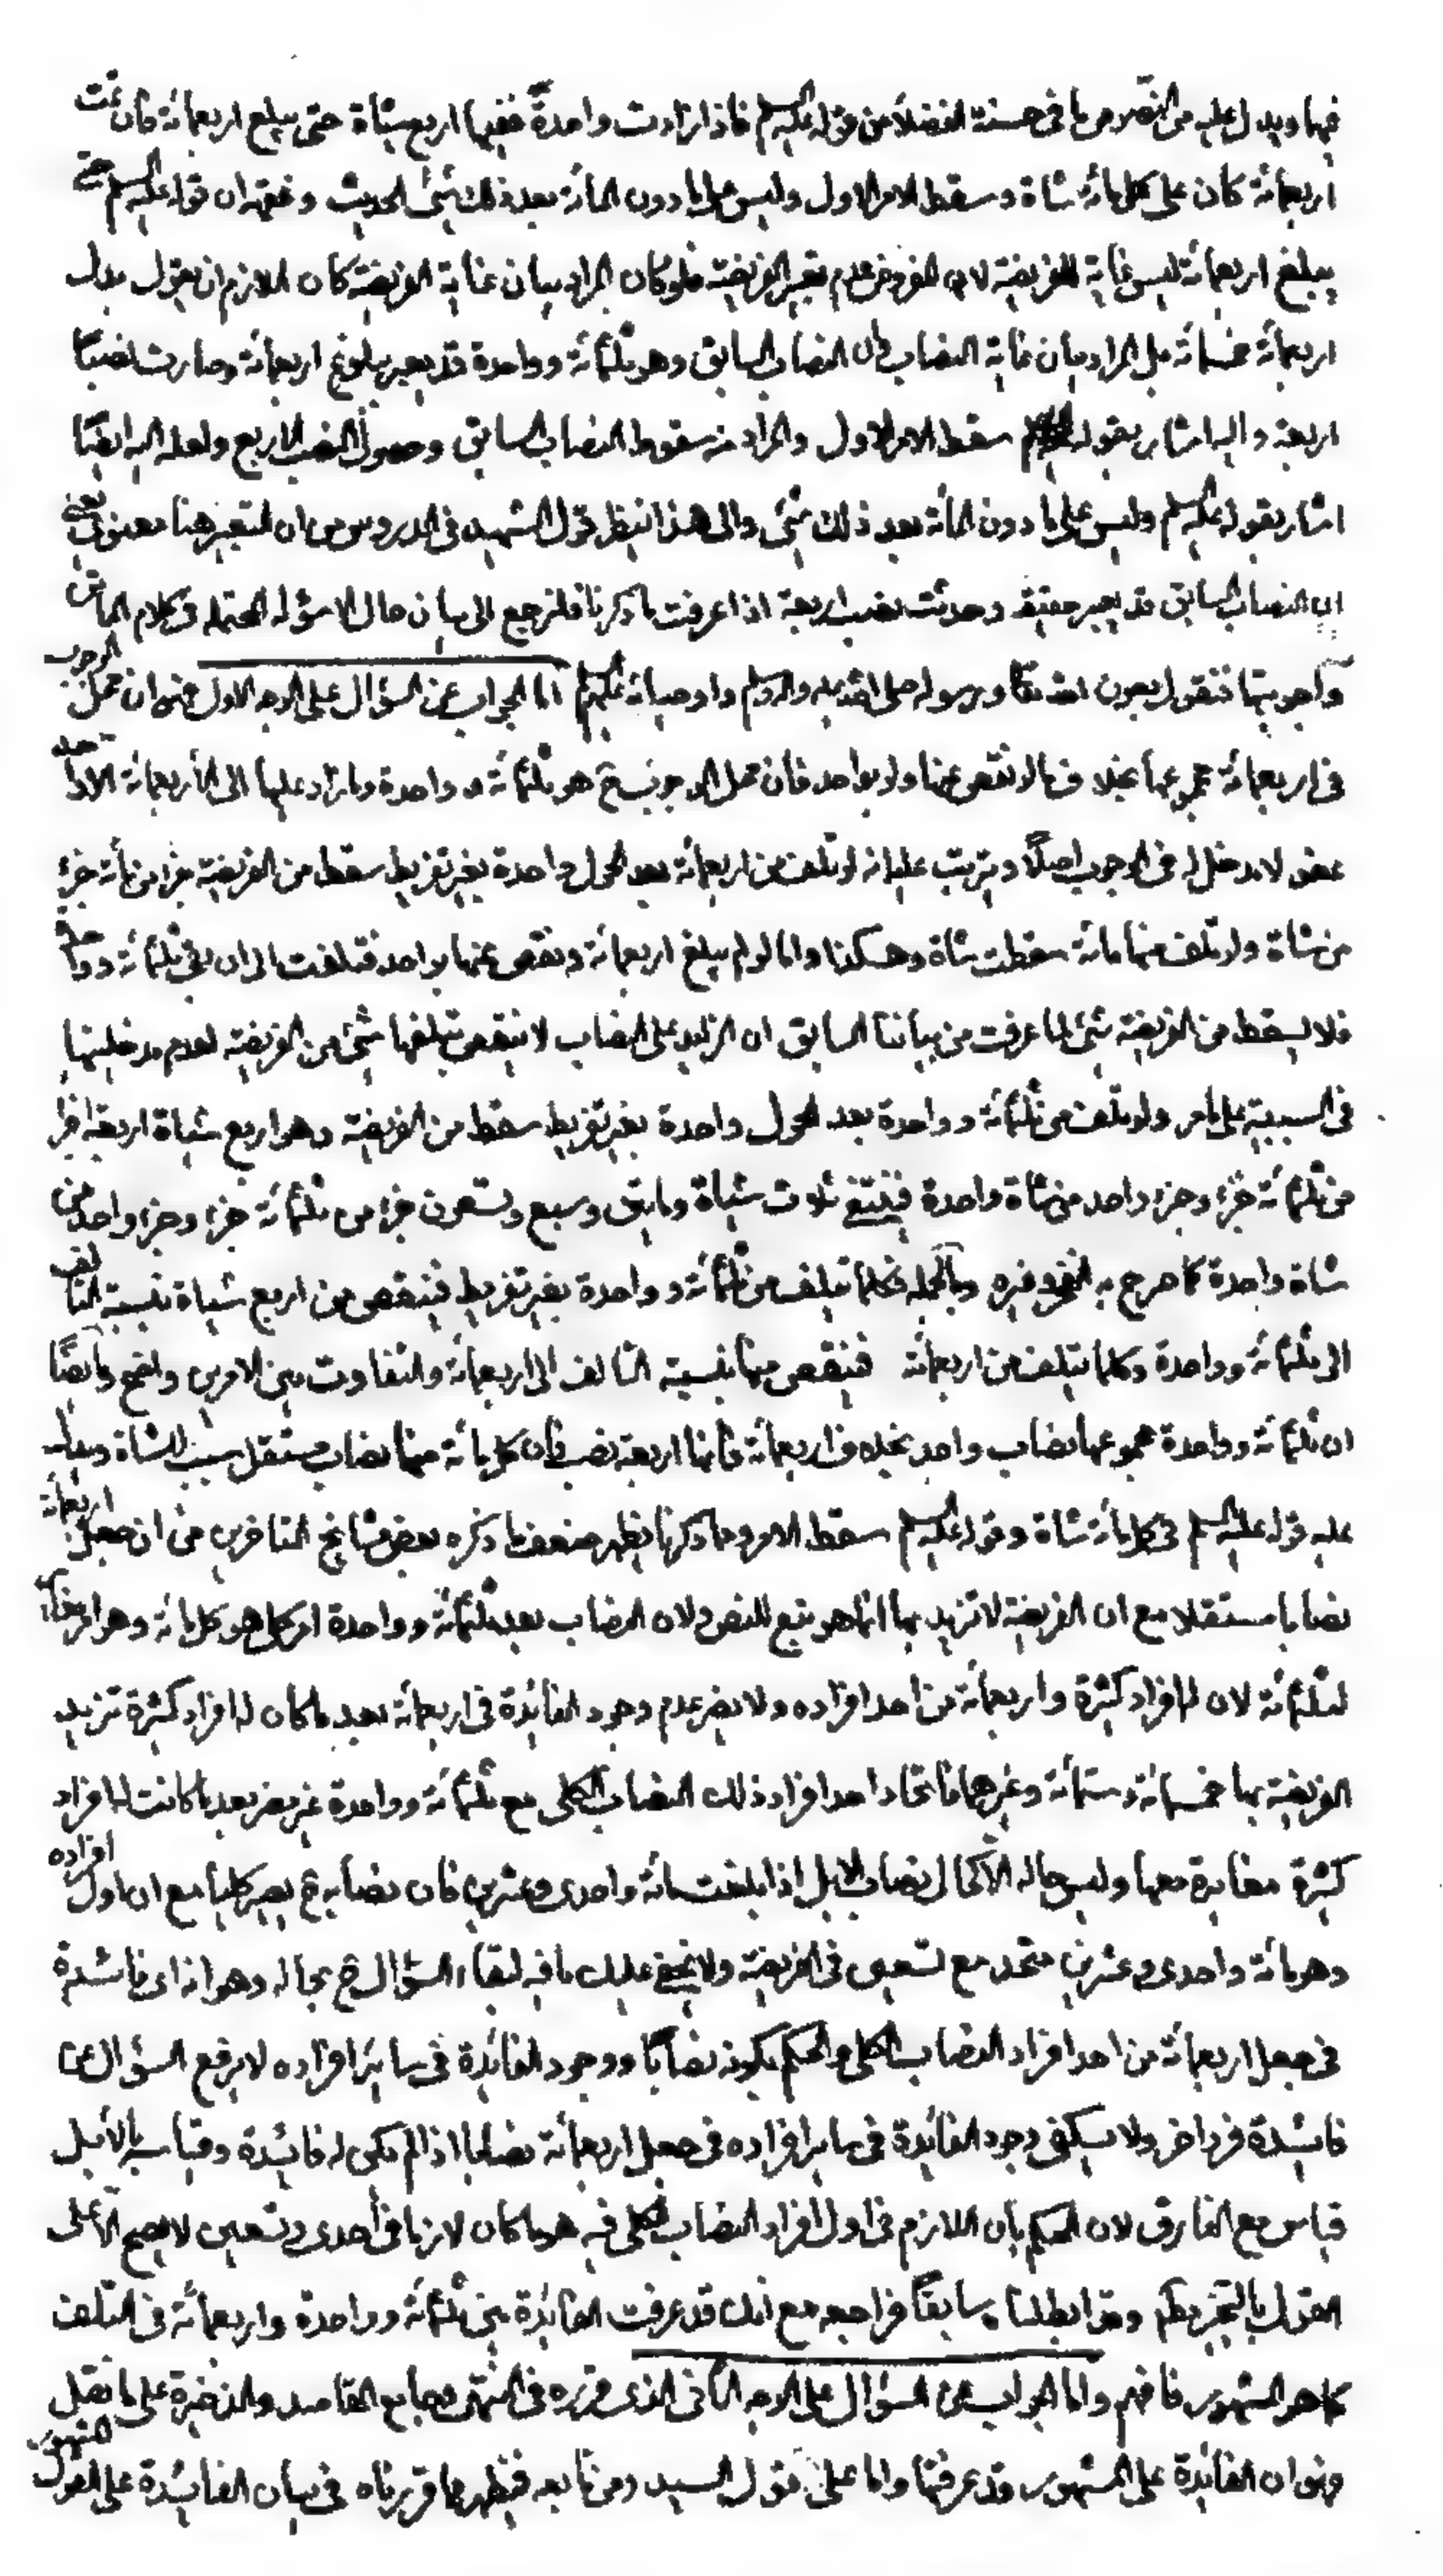 فيها ويدل عليه من النصوص ما في حسنة الفضلاء من قوله عليه السلم فاذا زادت واحدة ففيها اربع شياة حتى يبلغ اربعمائة فان تمت
اربعمائة كان على كل مائة شاة وسقط الامر الاول وليس على ما دون المائة بعد ذلك شئ الحديث وفقهه ان قوله عليه السلم حتى
يبلغ اربعمائة ليس غاية للفريضة لان المفروض عدم تغير الفريضة فلو كان المراد بيان غاية الفريضة كان اللازم ان يقول بدل
اربعمائة خمسمائة بل المراد بيان غاية النصاب فان النصاب السابق وهو ثلثمائة وواحدة قد يعبر ببلوغ اربعمائة وصارت نصبا
اربعة واليه اشار بقوله سقط الامر الاول والمراد منه سقوط النصاب السابق وحصول النصب الاربع ولعله اليه ايضا
اشار بقوله عليه السلم وليس على ما دون المائة بعد ذلك شئ والى هذا ينظر قول الشهيد في الدروس من ان التغير هنا معنوي يعني
ان النصاب السابق قد يعبر حقيقة وحدثت نصب اربعة اذا عرفت ما ذكرنا فلنرجع الى بيان حال الاسؤلة المحتملة في كلام الماتن
واجوبتها فنقول بعون الله تعالى ورسوله صلى الله عليه واله وسلم واوصيائه عليهم السلم اما الجواب عن السؤال على الوجه الاول فهو ان محل الوجوب
في اربعمائة مجموعها بخلاف ما لو نقص عنها ولو بواحد فان محل الوجوب ح هو ثلثمائة وواحدة وما زاد عليها الى الأربعمائة الا واحدة
عفو لا مدخل له في الوجوب اصلا ويترتب عليه انه لو تلفت من اربعمائة بعد الحول واحدة بغير تفريط سقط من الفريضة جزء من مائة جزء
من شاة ولو تلف منها مائة سقطت شاة وهكذا واما لو لم يبلغ اربعمائة ونقص عنها بواحد فتلفت الى ان بقي ثلثمائة وواحدة
فلا يسقط من الفريضة شئ لما عرفت من بياننا السابق ان الزايد على النصاب لا ينقص بتلفها شئ من الفريضة لعدم مدخليتها
في السببية على ما مر ولو تلف من ثلثمائة وواحدة بعد الحول واحدة بغير تفريط سقط من الفريضة وهو اربع شياة اربعة اجزاء
من ثلثمائة جزء وجزء واحد من شاة واحدة فيبقى ثلاث شياة ومايتى وسبع وتسعون جزء من ثلثمائة جزء وجزء واحد من
شاة واحدة كما صرح به الفخر وغيره وبالجملة فكلما يتلف من ثلثمائة وواحدة بغير تفريط فينقص من اربع شياة بنسبة التالف
الى ثلثمائة وواحدة وكلما يتلف من اربعمائة فينقص منها بنسبة التالف الى اربعمائة والتفاوت بين الامرين واضح وايضا
ان ثلثمائة وواحدة مجموعها نصاب واحد بخلاف اربعمائة فانها اربعة نصب فان كل مائة منها نصاب مستقل سبب للشاة ويدل
عليه قوله عليه السلم في كل مائة شاة وقوله عليه السلم سقط الامر ومما ذكرنا يظهر ضعف ما ذكره بعض مشايخ المتأخرين من ان جعل اربعمائة
نصابا مستقلا مع ان الفريضة لا تزيد بها انما هو تبع للنص ولان النصاب بعد ثلثمائة وواحدة امر كلي هو كل مائة وهو امر مغاير
لثلثمائة لان لها افراد كثيرة واربعمائة من احد افراده ولا يضر عدم وجود الفائدة في اربعمائة بعد ما كان له افراد كثيرة تزيد
الفريضة بها خمسمائة وستمائة وغيرهما فاتحاد احد افراد ذلك النصاب الكلي مع ثلثمائة وواحدة غير مضر بعد ما كانت لها افراد
كثيرة مغايرة معها وليس حاله الا كحال نصاب الابل اذا بلغت مائة واحدى وعشرين فان نصابه ح يصير كليا مع ان اول افراده
وهو مائة واحدى وعشرين متحد مع تسعين في الفريضة ولا يخفى عليك ما فيه لبقاء السؤال ح بحاله وهو انه اى فائدة
في جعل اربعمائة من احد افراد النصاب الكلي والحكم بكونه نصابا ووجود الفائدة في سائر افراده لا يرفع السؤال عن
فائدة فرد اخر ولا يكفي وجود الفائدة في ساير افراده في جعل اربعمائة نصابا اذا لم تكن له فائدة وقياسه بالأبل
قياس مع الفارق لان الحكم بان اللازم في اول افراد النصاب الكلي فيه هو ما كان لازما في أحدى وتسعين لا يصح الا على
القول بالتخيير مطلقا وقد ابطلناه سابقا فراجعه مع انك قد عرفت الفائدة بين ثلثمائة وواحدة واربعمائة في التلف
كما هو المشهور فافهم واما الجواب عن السؤال على الوجه الثاني الذى قرره في المنتهى وجامع المقاصد والذخيرة على ما نقل
فهو ان الفائدة على المشهور قد عرفتها واما على قول السيد ومن تابعه فيظهر مما قررناه في بيان الفائدة على القول المشهور